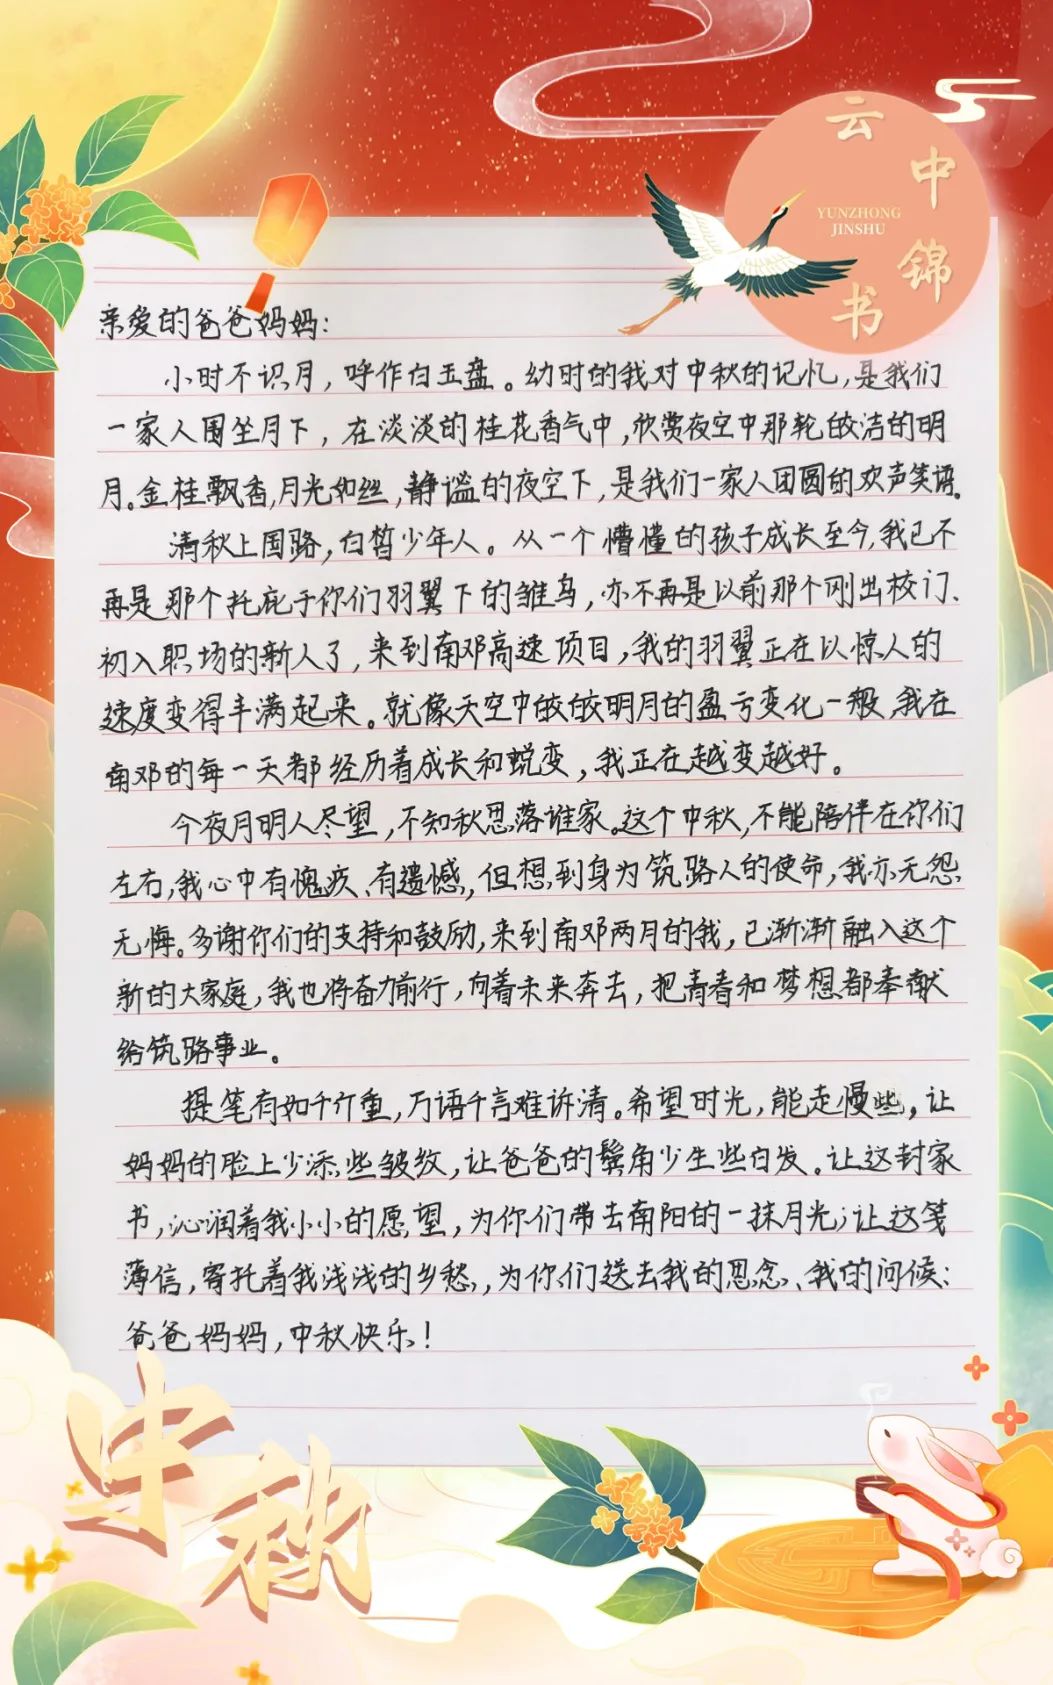 云中锦书
YUNZHONG
JINSHU
亲爱的爸爸妈妈：
小时不识月，呼作白玉盘。幼时的我对中秋的记忆，是我们
一家人围坐月下，在淡淡的桂花香气中，欣赏夜空中那轮皎洁的明
月。金桂飘香，月光如丝，静谧的夜空下，是我们一家人团圆的欢声笑语。
清秋上国路，白皙少年人。从一个懵懂的孩子成长至今，我已不
再是那个托庇于你们羽翼下的雏鸟，亦不再是以前那个刚出校门、
初入职场的新人了，来到南邓高速项目，我的羽翼正在以惊人的
速度变得丰满起来。就像天空中皎皎明月的盈亏变化一般，我在
南邓的每一天都经历着成长和蜕变，我正在越变越好。
今夜月明人尽望，不知秋思落谁家。这个中秋，不能陪伴在你们
左右，我心中有愧疚、有遗憾，但想到身为筑路人的使命，我亦无怨
无悔。多谢你们的支持和鼓励，来到南邓两月的我，已渐渐融入这个
新的大家庭，我也将奋力前行，向着未来奔去，把青春和梦想都奉献
给筑路事业。
提笔有如千斤重，万语千言难诉清。希望时光，能走慢些，让
妈妈的脸上少添些皱纹，让爸爸的鬓角少生些白发。让这封家
书，沁润着我小小的愿望，为你们带去南阳的一抹月光；让这笺
薄信，寄托着我浅浅的乡愁，为你们送去我的思念、我的问候：
爸爸妈妈，中秋快乐！
中秋